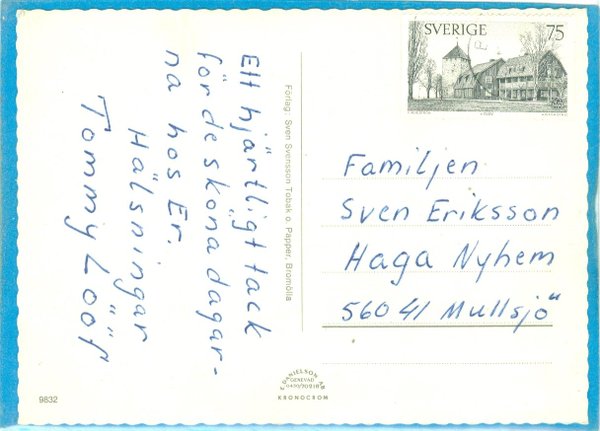 Ett hjärtligt tack
för de sköna dagar-
na hos Er.
Hälsningar
Tommy Lööf
Förlag: Sven Svensson Tobak o. Papper, Bromölla
SVERIGE 75
Familjen
Sven Eriksson
Haga Nyhem
560 41 Mullsjö
DANIELSON AB
GENEVAD
KRONOCROM
9832